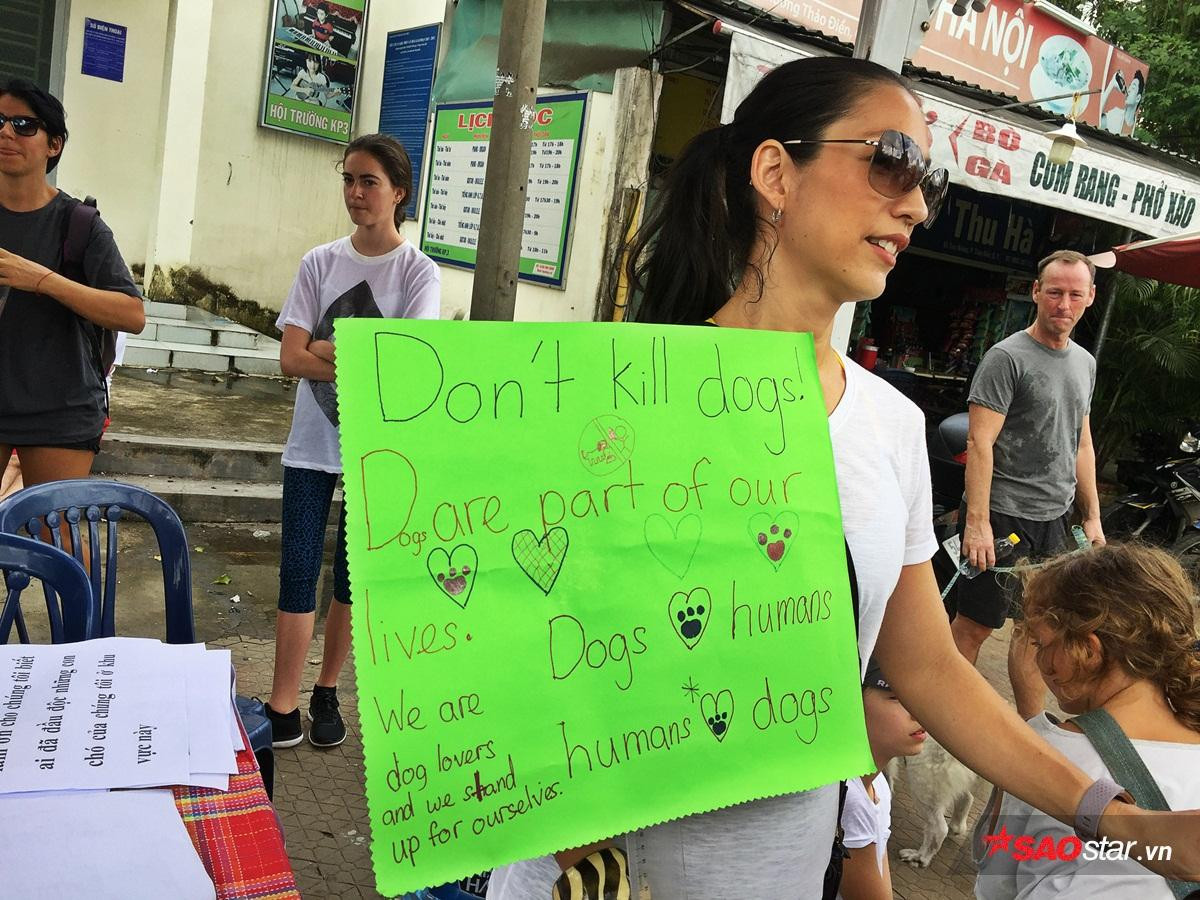 SỐ ĐIỆN THOẠI
HỘI TRƯỜNG KP3
LỊCH HỌC
Thảo Điền
HÀ NỘI
BÒ
GÀ
CƠM RANG - PHỞ XÀO
Thu Hà
Don't kill dogs!
Dogs are part of our
lives.
Dogs humans
humans* dogs
We are
dog lovers
and we stand
up for ourselves.
ơn cho chúng tôi biết
ai đã đầu độc những con
chó của chúng tôi ở khu
vực này
SAOstar.vn